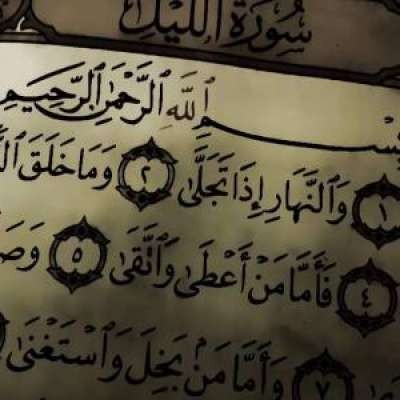 سُورَةُ ٱللَّيْلِ
بِسْمِ ٱللَّهِ ٱلرَّحْمَٰنِ ٱلرَّحِيمِ
١ وَٱلنَّهَارِ إِذَا تَجَلَّىٰ ٢ وَمَا خَلَقَ
٤ فَأَمَّا مَنْ أَعْطَىٰ وَٱتَّقَىٰ ٥
٧ وَأَمَّا مَنۢ بَخِلَ وَٱسْتَغْنَىٰ